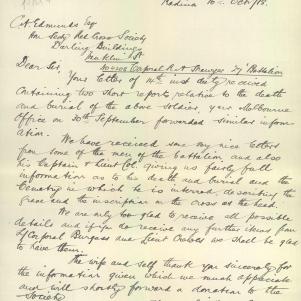 Kadina 16th Octr/18.
C A Edmunds Esq
Hon Secty Red Cross Society
Darling Buildings
Franklin St
Dear Sir, Corporal R A Burgess 27 Battalion
Your letter of 14th inst duly received
containing two short reports relative to the death
and burial of the above Soldier, your Melbourne
Office on 30th September forwarded similar inform
ation.
We have received some very nice letters
from some of the men of the Battalion and also
his Captain & Lieut Col. giving us fairly full
information as to his death and burial and the
Cemetery in which he is interred, also the
grave and the inscription on the cross at the head.
We are only too glad to receive all possible
details and if you do receive any further items from
Corporal Burgess and Lieut we shall be glad
to have them.
The wife and self thank you sincerely for
the information given which we much appreciate
and will shortly forward a donation to the
Society